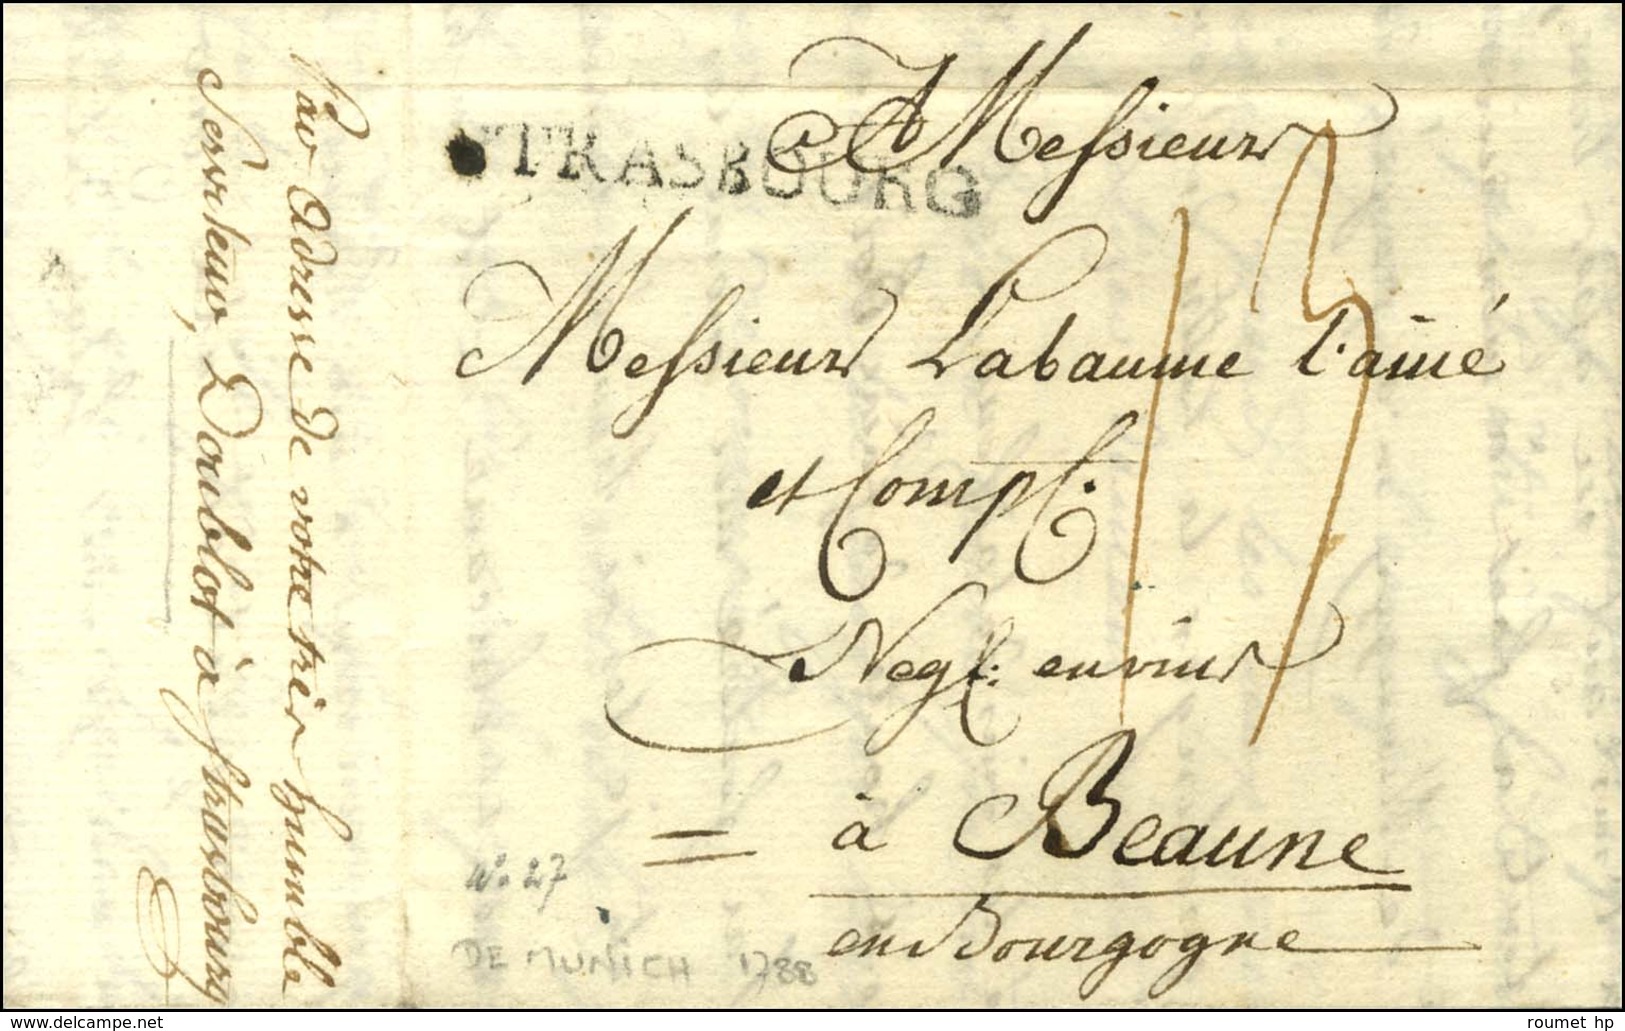 STRASBOURG
A Messieurs
Messieurs Labaume l'ainé
et Comp.
Negt. en vins
à Beaune
en Bourgogne
13
Par adresse de votre très humble
Serviteur, Doublot à Strasbourg
N° 27
DE MUNICH 1788
delcampe.net
roumet hp